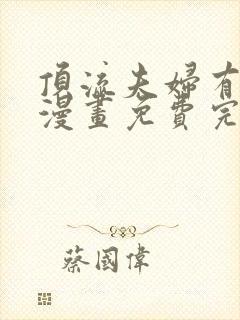 頂流夫婦有
漫畫免費完
蔡國偉